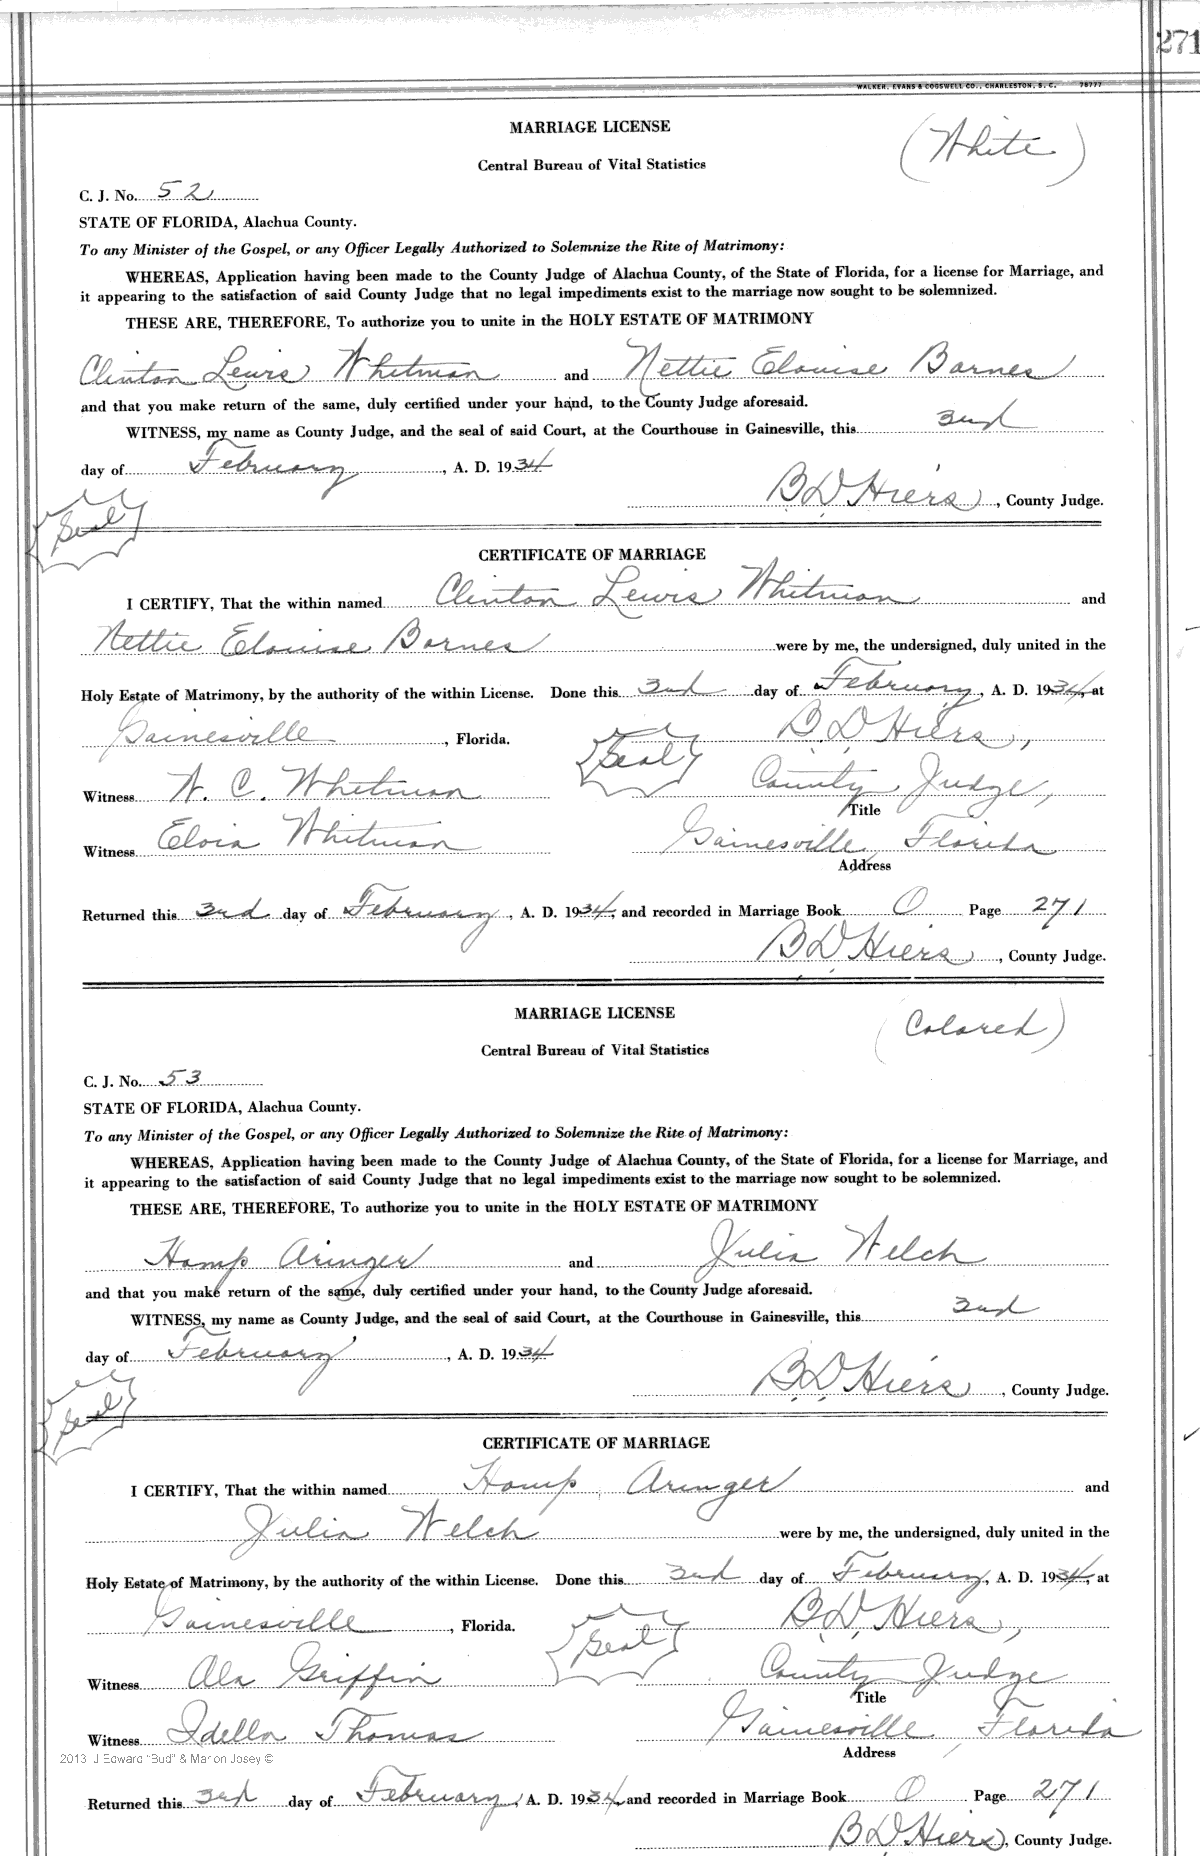 271
WALKER, EVANS & COGSWELL CO., CHARLESTON, S. C. 78777
MARRIAGE LICENSE
(White)
Central Bureau of Vital Statistics
C. J. No. 52
STATE OF FLORIDA, Alachua County.
To any Minister of the Gospel, or any Officer Legally Authorized to Solemnize the Rite of Matrimony:
WHEREAS, Application having been made to the County Judge of Alachua County, of the State of Florida, for a license for Marriage, and
it appearing to the satisfaction of said County Judge that no legal impediments exist to the marriage now sought to be solemnized.
THESE ARE, THEREFORE, To authorize you to unite in the HOLY ESTATE OF MATRIMONY
Clinton Lewis Whitman and Nettie Elouise Barnes
and that you make return of the same, duly certified under your hand, to the County Judge aforesaid.
WITNESS, my name as County Judge, and the seal of said Court, at the Courthouse in Gainesville, this 3rd
day of February, A. D. 1934
B D Hiers, County Judge.
Seal
CERTIFICATE OF MARRIAGE
I CERTIFY, That the within named Clinton Lewis Whitman and
Nettie Elouise Barnes were by me, the undersigned, duly united in the
Holy Estate of Matrimony, by the authority of the within License. Done this 3rd day of February, A. D. 1934, at
Gainesville, Florida. Seal B. D. Hiers,
Witness W. C. Whitman County Judge,
Title
Witness Elvia Whitman Gainesville, Florida
Address
Returned this 3rd day of February, A. D. 1934, and recorded in Marriage Book O Page 271
B D Hiers, County Judge.
MARRIAGE LICENSE
(Colored)
Central Bureau of Vital Statistics
C. J. No. 53
STATE OF FLORIDA, Alachua County.
To any Minister of the Gospel, or any Officer Legally Authorized to Solemnize the Rite of Matrimony:
WHEREAS, Application having been made to the County Judge of Alachua County, of the State of Florida, for a license for Marriage, and
it appearing to the satisfaction of said County Judge that no legal impediments exist to the marriage now sought to be solemnized.
THESE ARE, THEREFORE, To authorize you to unite in the HOLY ESTATE OF MATRIMONY
Hamp Aringer and Julia Welch
and that you make return of the same, duly certified under your hand, to the County Judge aforesaid.
WITNESS, my name as County Judge, and the seal of said Court, at the Courthouse in Gainesville, this 3rd
day of February, A. D. 1934
B. D. Hiers, County Judge.
Seal
CERTIFICATE OF MARRIAGE
I CERTIFY, That the within named Hamp Aringer and
Julia Welch were by me, the undersigned, duly united in the
Holy Estate of Matrimony, by the authority of the within License. Done this 3rd day of February, A. D. 1934, at
Gainesville, Florida. Seal B. D. Hiers,
Witness Ala Griffin County Judge
Title
Witness Idella Thomas Gainesville, Florida
2013 J Edward "Bud" & Marion Josey ©
Address
Returned this 3rd day of February, A. D. 1934, and recorded in Marriage Book O Page 271
B D Hiers, County Judge.